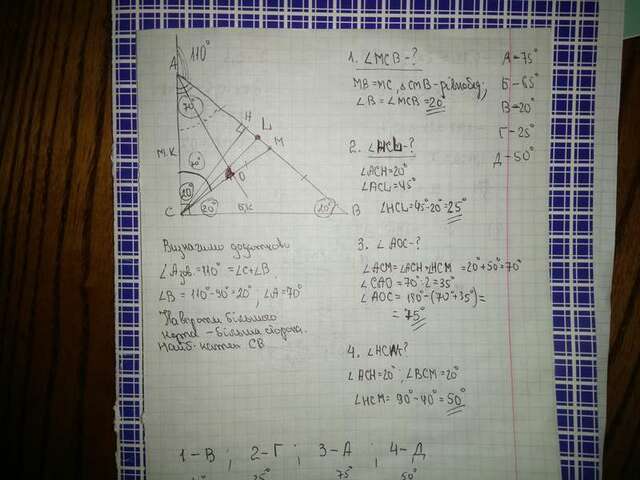 110°
A
мк
70°
C
20°
20°
O
H
L
M
бк
20°
B
Визначимо додатково
∠Aзов=110° = ∠C+∠B.
∠B = 110°-90°=20°, ∠A=70°
Навпроти більшого
кута - більша сторона.
Найб. катет CB.
1. ∠MCB-?
MB=MC, ΔCMB-рівнобед;
∠B = ∠MCB=20°
2. ∠HCL-?
∠ACH=20°
∠ACL=45°
∠HCL=45°-20°=25°
3. ∠AOC-?
∠ACM=∠ACH+∠HCM = 20°+50°=70°
∠CAO = 70°:2=35°
∠AOC = 180°-(70°+35°)=
= 75°
4. ∠HCM?
∠ACH=20°, ∠BCM=20°
∠HCM= 90°-40°=50°
A=75°
Б-65°
В=20°
Г-25°
Д-50°
1-В; 2-Г; 3-А; 4-Д
25° 75° 50°